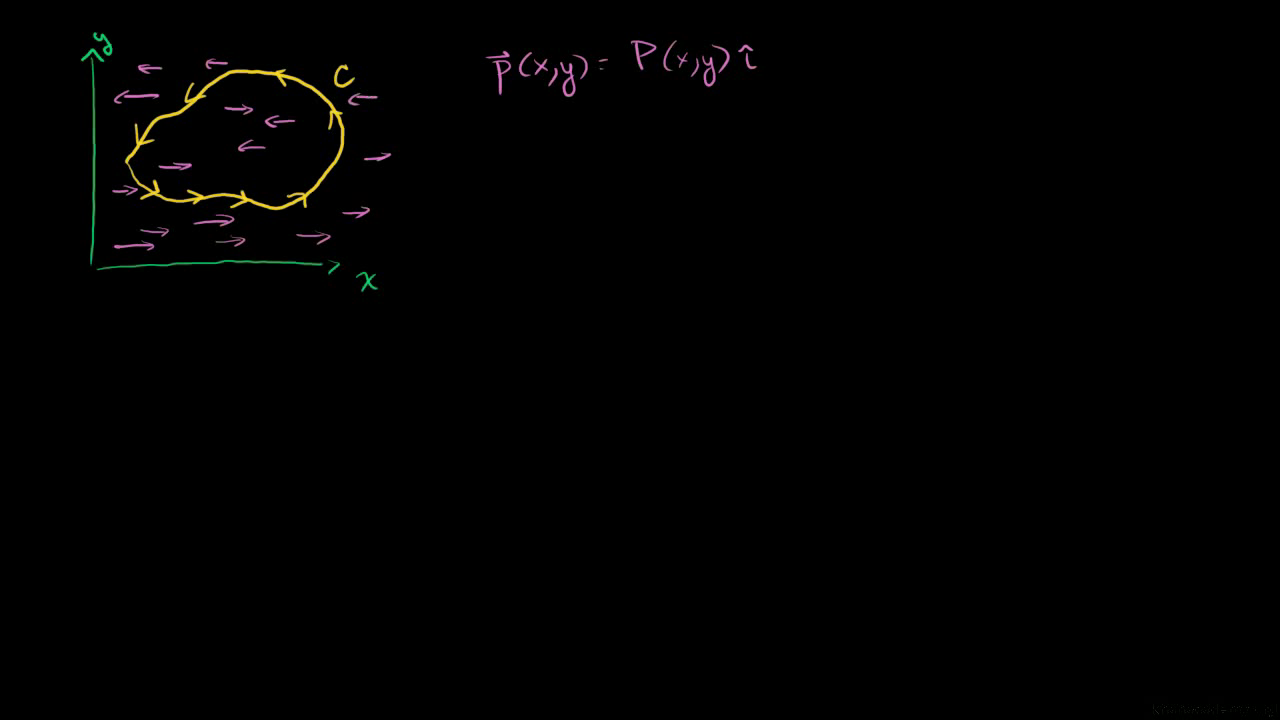 y
C
x
p⃗(x,y) = P(x,y) î